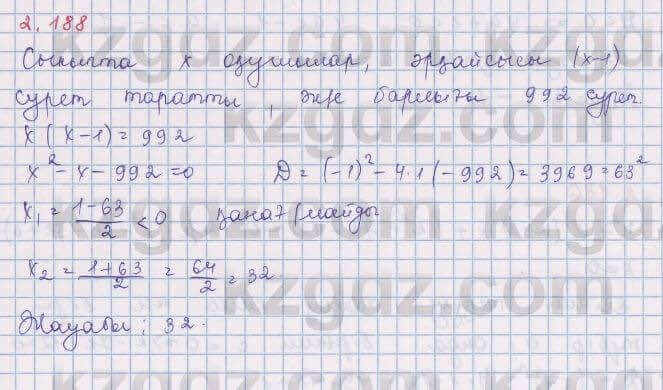 2.188
Сыныпта x оқушылар, әрқайсысы (x-1)
сурет таратты, әрі барлығы 992 сурет.
x(x-1)=992
x²-x-992=0 D=(-1)²-4·1(-992)=3969=63²
x₁=(1-63)/2<0 қанағ/майды
x₂=(1+63)/2=64/2=32.
Жауабы: 32.
kzgdz.com